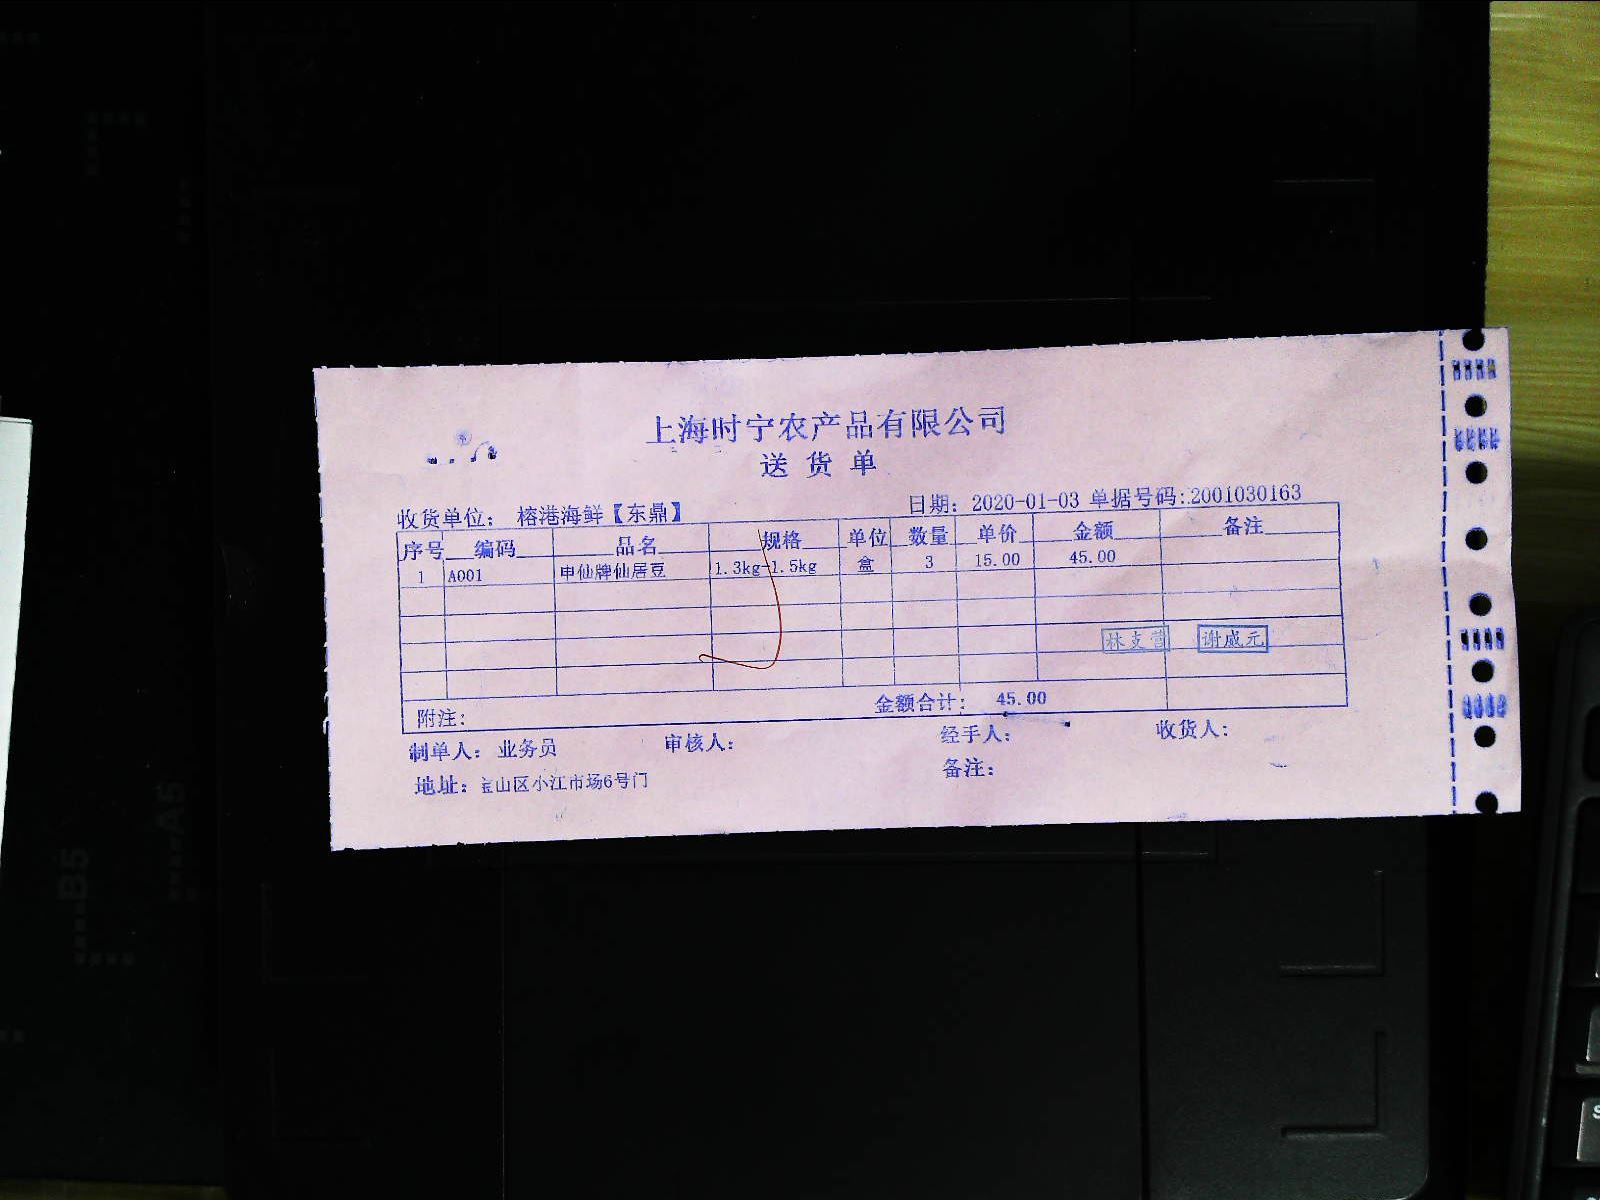 上海时宁农产品有限公司
送货单
收货单位： 榕港海鲜【东鼎】 日期： 2020-01-03 单据号码:2001030163
序号 编码 品名 规格 单位 数量 单价 金额 备注
1 A001 申仙牌仙居豆 1.3kg-1.5kg 盒 3 15.00 45.00
谢威元
附注： 金额合计： 45.00
制单人： 业务员 审核人： 经手人： 收货人：
地址： 宝山区小江市场6号门 备注：
B5
A5